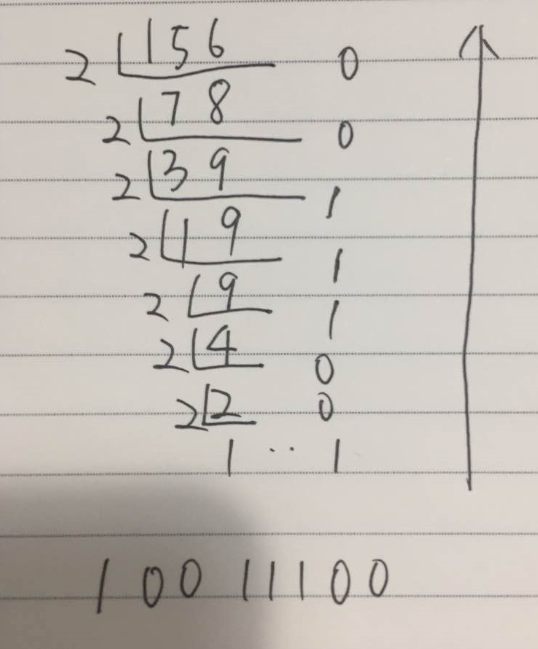 2 156 0
2 78 0
2 39 1
2 19 1
2 9 1
2 4 0
2 2 0
1 ... 1
10011100